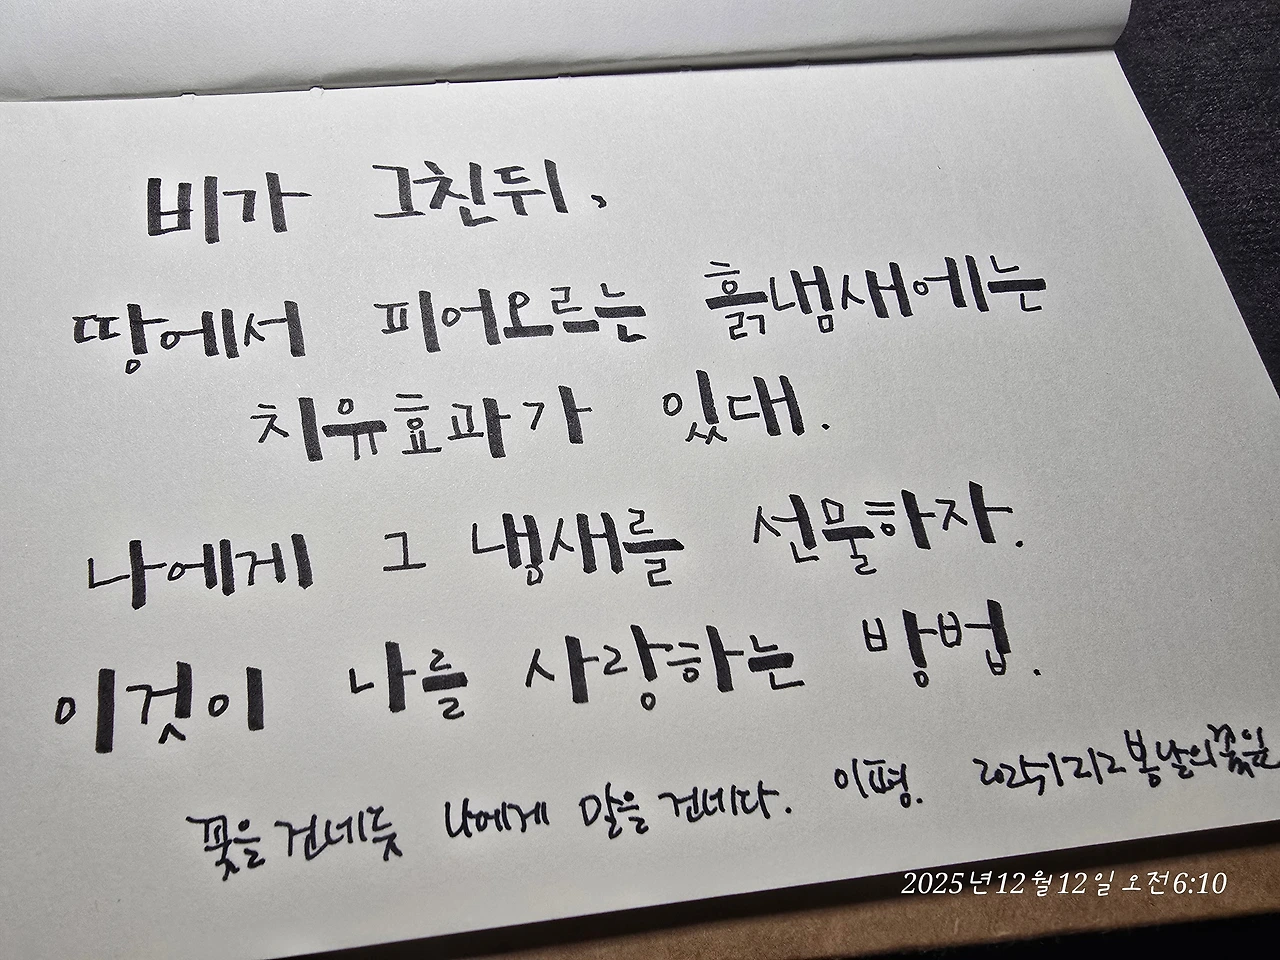 비가 그친뒤,
땅에서 피어오르는 흙냄새에는
치유효과가 있대.
나에게 그 냄새를 선물하자.
이것이 나를 사랑하는 방법.
꽃을 건네듯 나에게 말을 건네다. 이평. 20251212 봄날의꽃잎
2025년12월12일 오전6:10